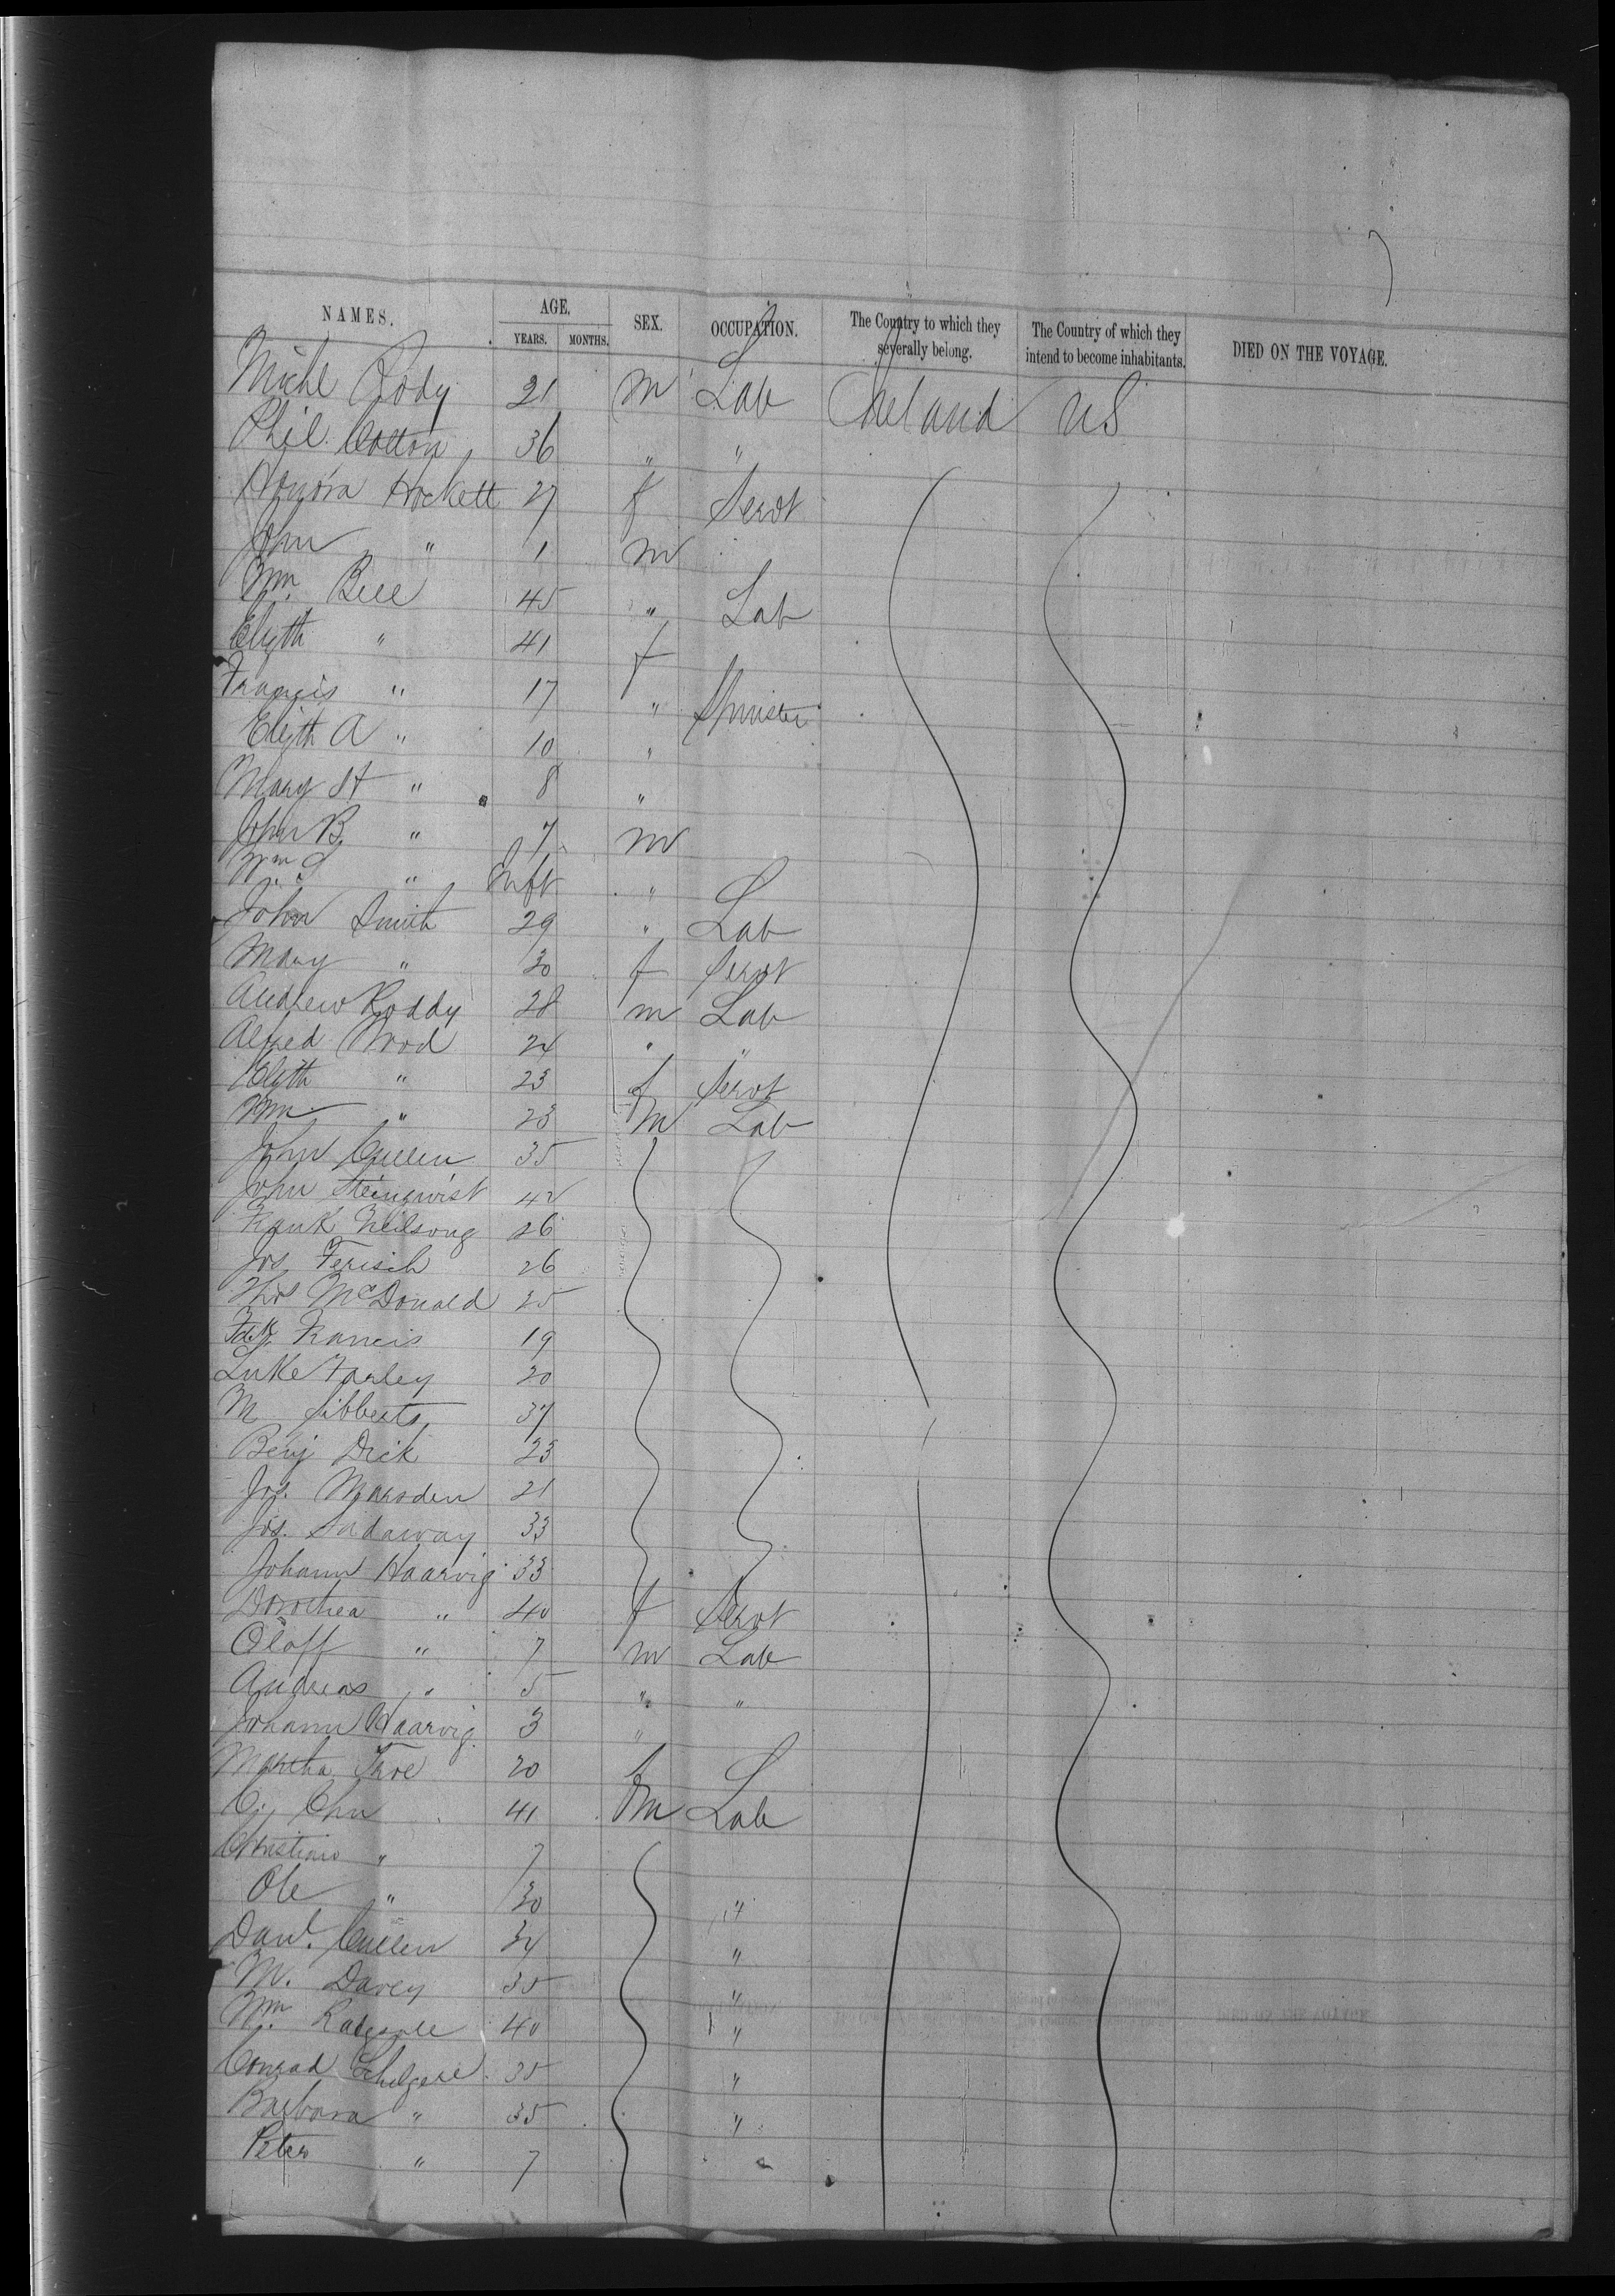 NAMES. AGE. SEX. OCCUPATION. The Country to which they severally belong. The Country of which they intend to become inhabitants. DIED ON THE VOYAGE.
YEARS. MONTHS.
Michl Rody 21 m Lab Ireland US
Phil. Cotton 36 " "
Honora Hockett 27 f Servt
John " 1 m
Wm. Bell 45 " Lab
Elizth " 41 f
Francis " 17 " Spinster
Elizth A " 10 "
Mary " 8 "
John B " 7 m
Wm S " Inft "
John Smith 29 " Lab
Mary " 30 f Servt
Andrew Roddy 28 m Lab
Alfred Wood 24 " "
Elizth " 23 f Servt
Wm " 23 m Lab
John Cullen 35
John Steinqvist 42
Frank Neilsong 26
Jos Ferisch 26
Thos McDonald 25
Fdk Francis 19
Luke Farley 20
M Sibberts 37
Benj Dick 23
Jos. Marsden 21
Jos. Sadaway 33
Johann Haarvig 33
Dorothea " 40 f Servt
Olaff " 7 m Lab
Andreas " 5 " "
Johann Haarvig 3 "
Martha 20 f
41 m Lab
Christian " 7
Ole " 30 "
Danl. Cullen 34 "
M. Davey 35 "
Wm. 40 "
Conrad 35 "
Barbara " 35 "
Peter " 7